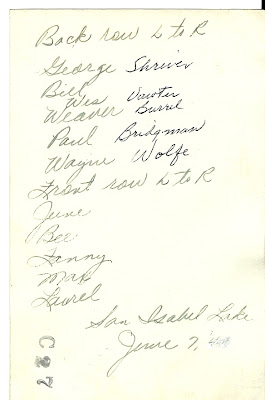 Back row L to R
George Shriver
Bill
Wes Vawter
Weaver Burrel
Paul Bridgman
Wayne Wolfe
Front row L to R
June
Bee
Fanny
Max
Laurel
San Isabel Lake
June 7,
C27